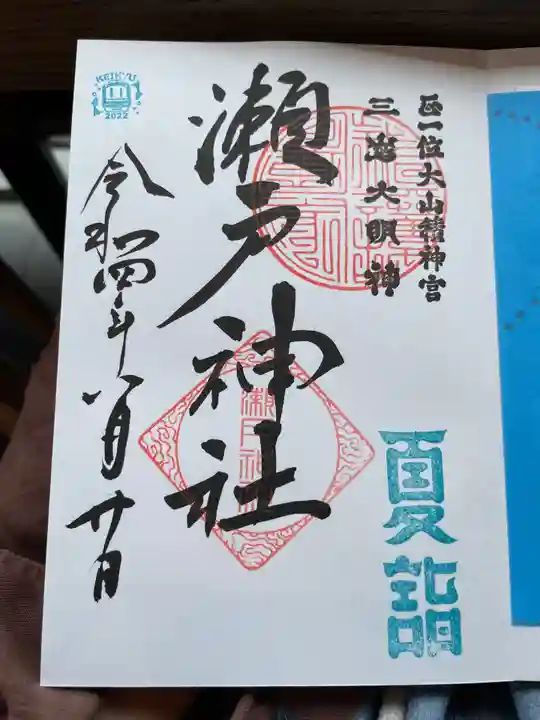 正一位大山積神宮
三嶌大明神
夏詣
瀬戸神社
瀬戸神社
令和四年八月廿日
KEIKYU
2022